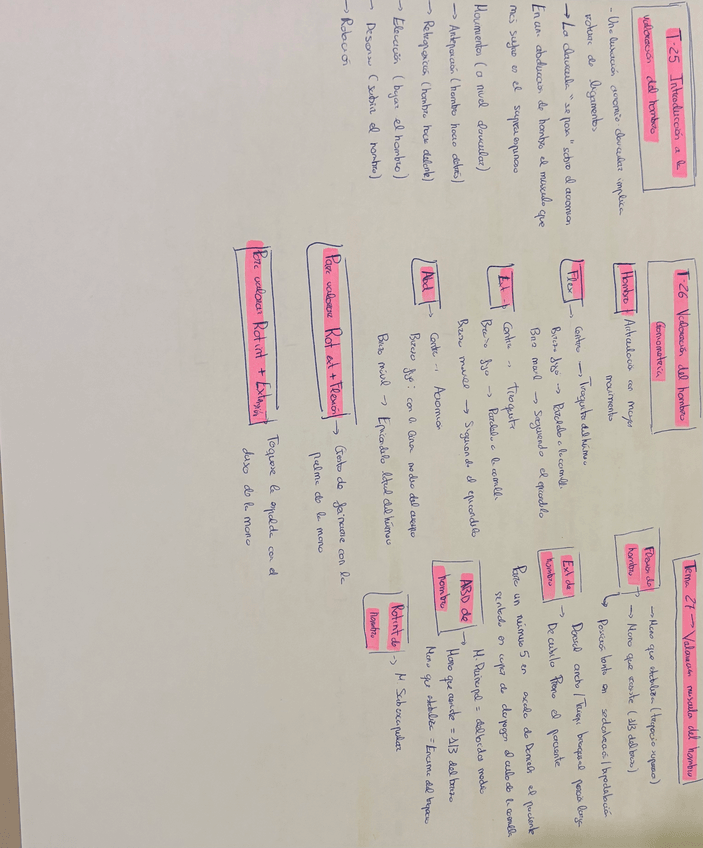 T-25 Introducción a la
valoración del hombro
- Una luxación acromio clavicular implica
rotura de ligamentos
→ La clavícula "se posa" sobre el acromion
En una abducción de hombro el músculo que
más sufre es el supraespinoso
Movimientos (a nivel clavicular)
→ Antepulsión (hombro hacia detrás)
→ Retropulsión (hombro hacia delante)
→ Elevación (bajar el hombro)
→ Descenso (subir el hombro)
→ Rotación
T-26 Valoración del hombro
Goniometría
Hombro Articulación con mayor
movimiento
Flex → Centro → Troquiter del húmero
Brazo fijo → Paralelo a la camilla
Brazo móvil → Siguiendo el epicóndilo
Ext → Centro → Troquiter
Brazo fijo → Paralelo a la camilla
Brazo móvil → Siguiendo el epicóndilo
Abd → Centro → Acromion
Brazo fijo: con la línea media del cuerpo
Brazo móvil → Epicóndilo lateral del húmero
Para valorar Rot ext + Flexión → Gesto de peinarse con la
palma de la mano
Para valorar Rot int + Extensión Toquese la espalda con el
dorso de la mano
Tema 27 → Valoración muscular del hombro
Flexión de hombro → Mano que estabiliza (trapecio superior)
→ Mano que resiste (1/3 del brazo)
→ Posición tanto en sedestación/bipedestación
Ext de hombro → Dorsal ancho/Tríceps braquial porción larga
De cúbito Prono el paciente
Para un número 5 en escala de Daniels el paciente
sentado es capaz de despegar el culo de la camilla
ABD de hombro → M. Principal = deltoides medio
Mano que resiste = 1/3 del brazo
Mano que estabiliza = Encima del trapecio
Rot int de hombro → M Subescapular